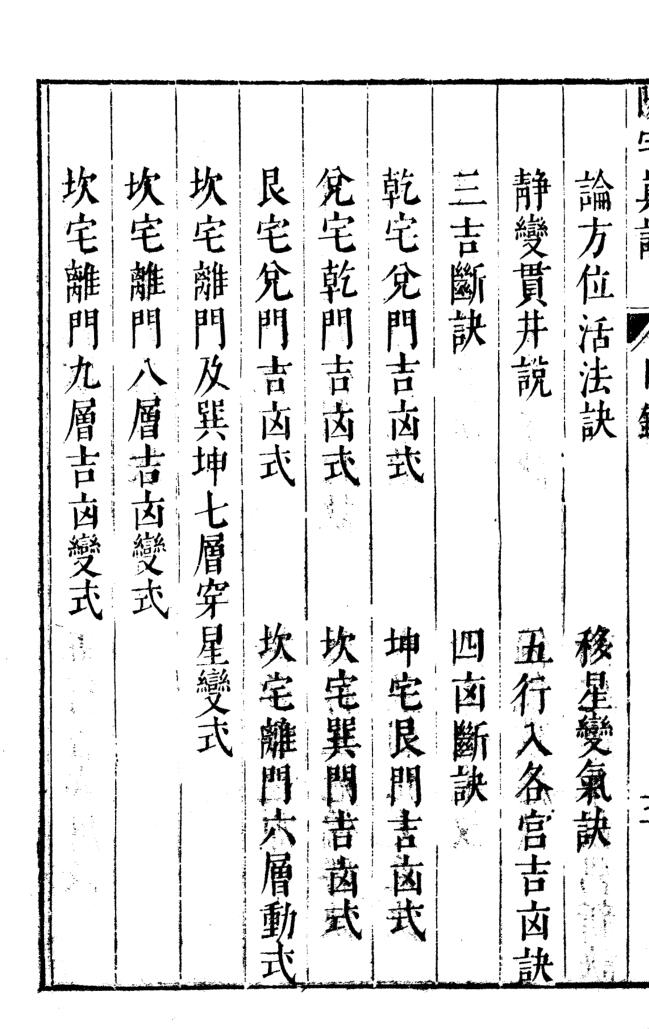 論方位活法訣　移星變氣訣
靜變貫井說　五行入各宫吉凶訣
三吉斷訣　四凶斷訣
乾宅兌門吉凶式　坤宅艮門吉凶式
兌宅乾門吉凶式　坎宅巽門吉凶式
艮宅兌門吉凶式　坎宅離門六層動式
坎宅離門及巽坤七層穿星變式
坎宅離門八層吉凶變式
坎宅離門九層吉凶變式